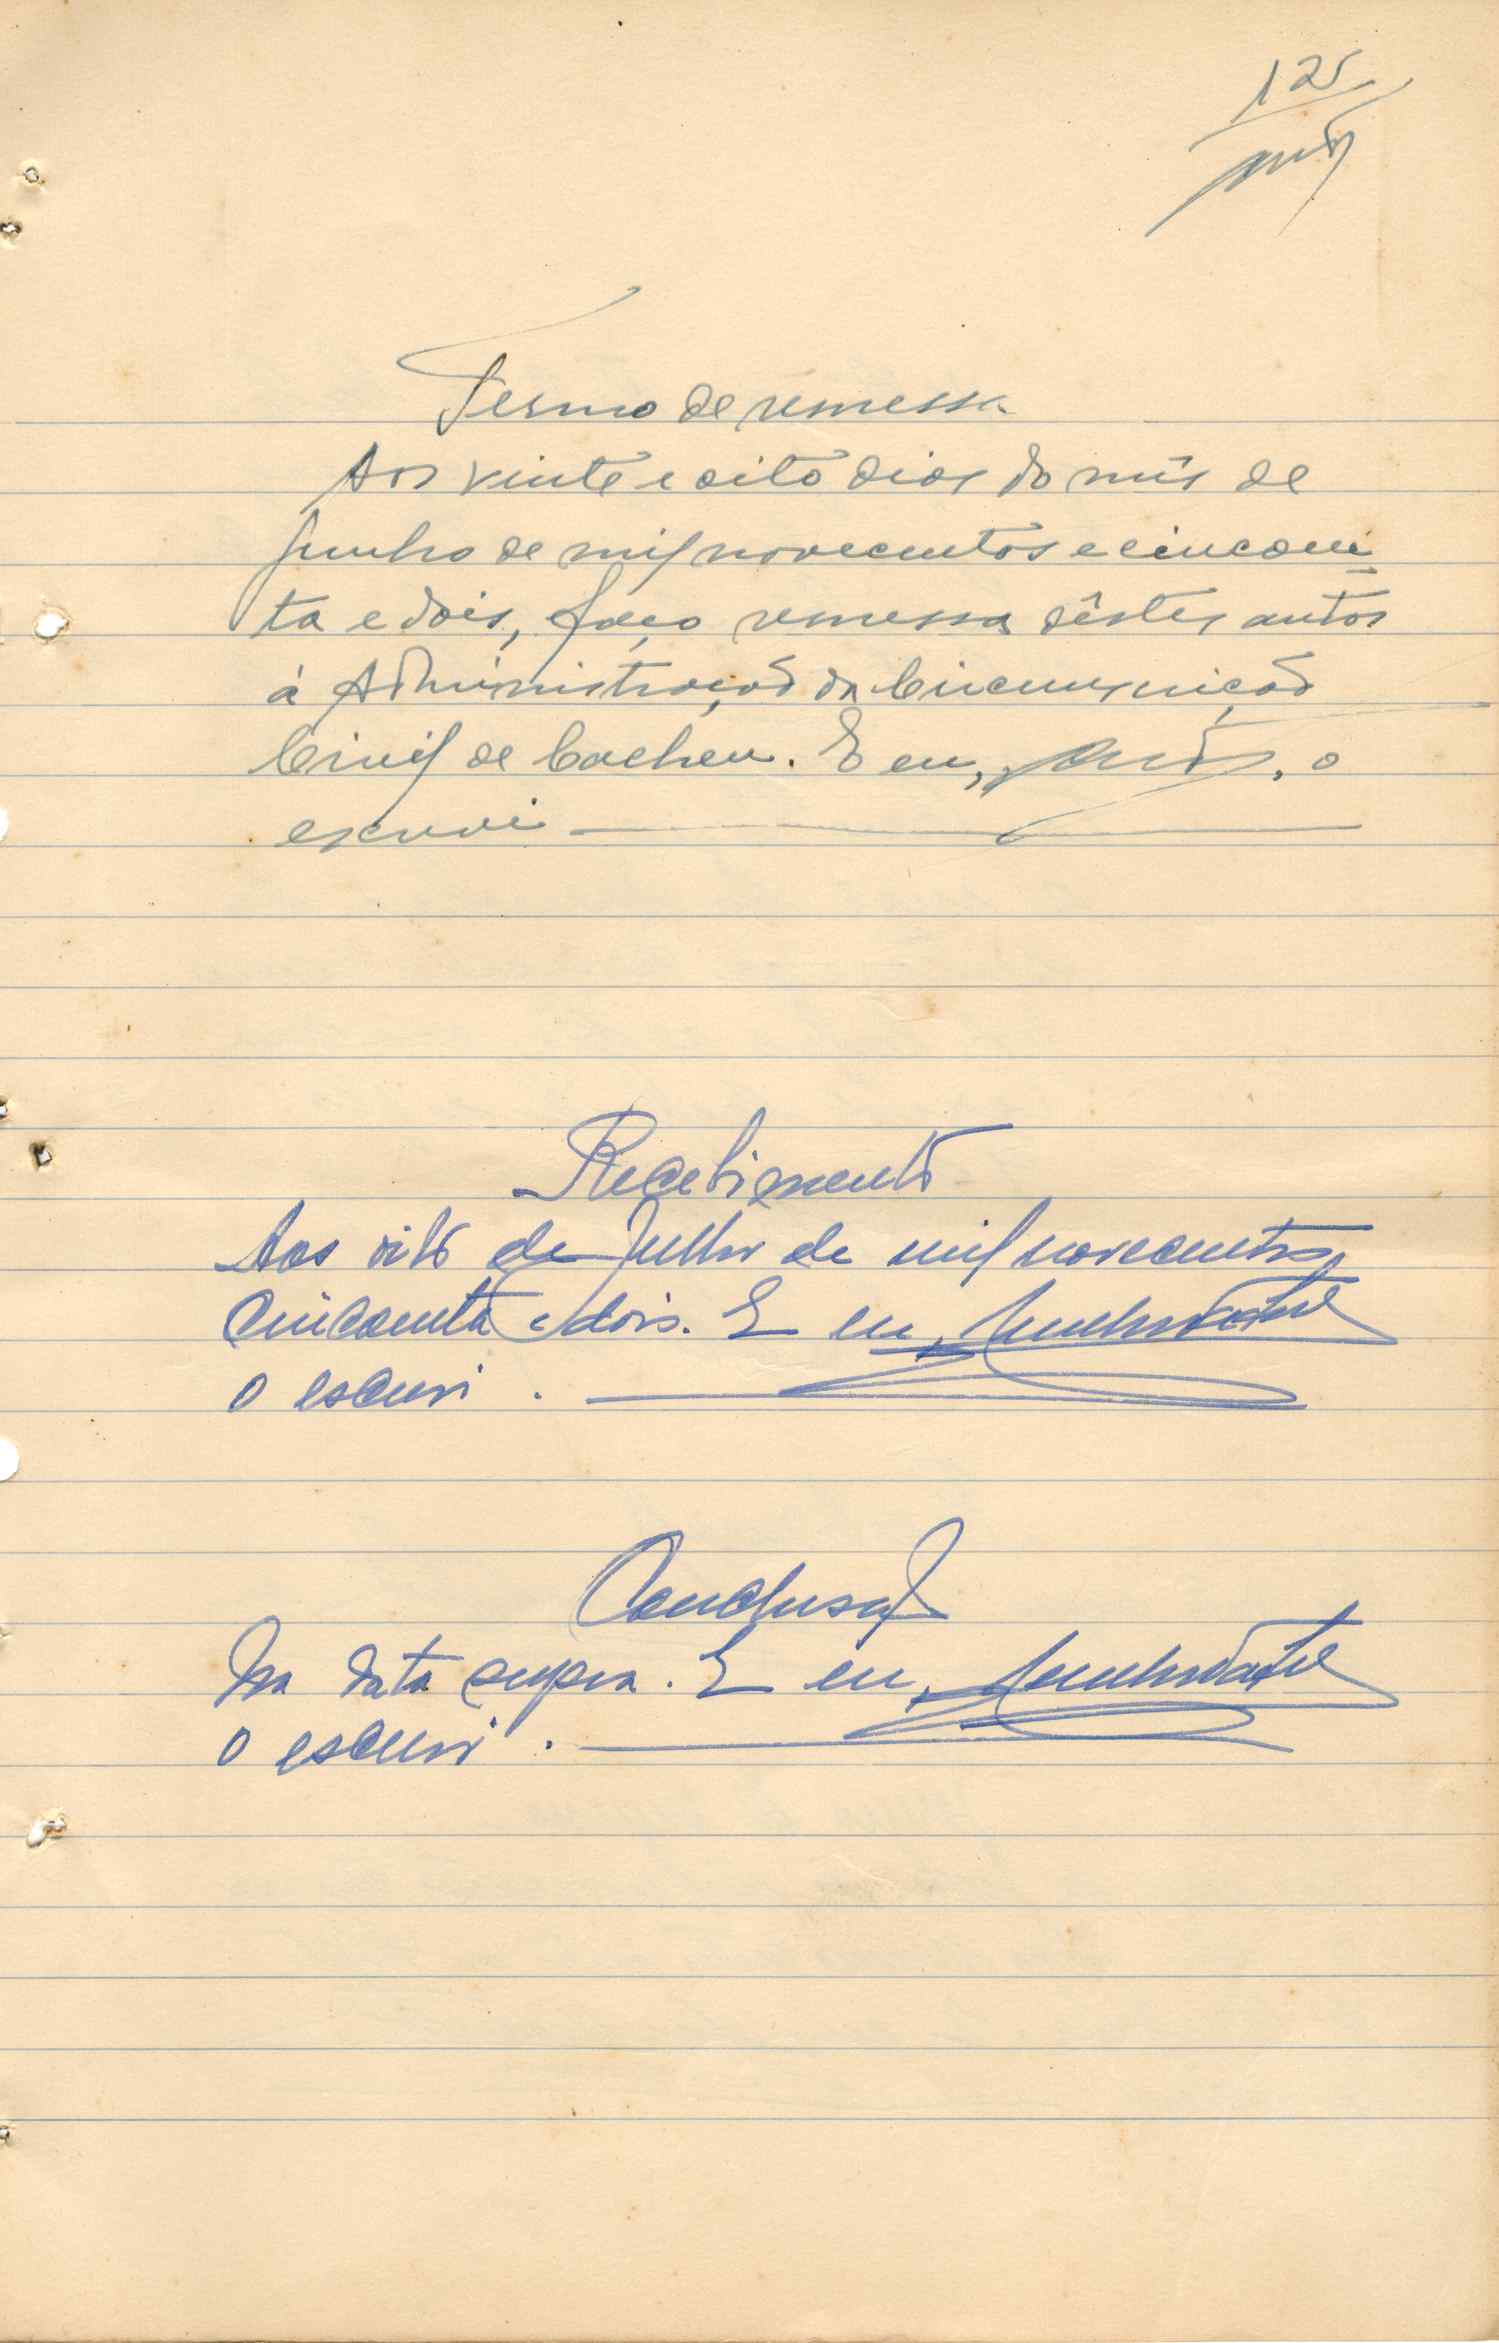 125
Termo de remessa
Aos vinte e oito dias do mês de
Junho de mil novecentos e cincoen-
ta e dois, faço remessa dêstes autos
á Administração da Circunscrição
Civil de Cacheu. E eu, , o
escrevi
Recebimento
Aos oito de Julho de mil novecentos
cincoenta e dois. E eu,
o escrevi.
Conclusão
Na data supra. E eu,
o escrevi.